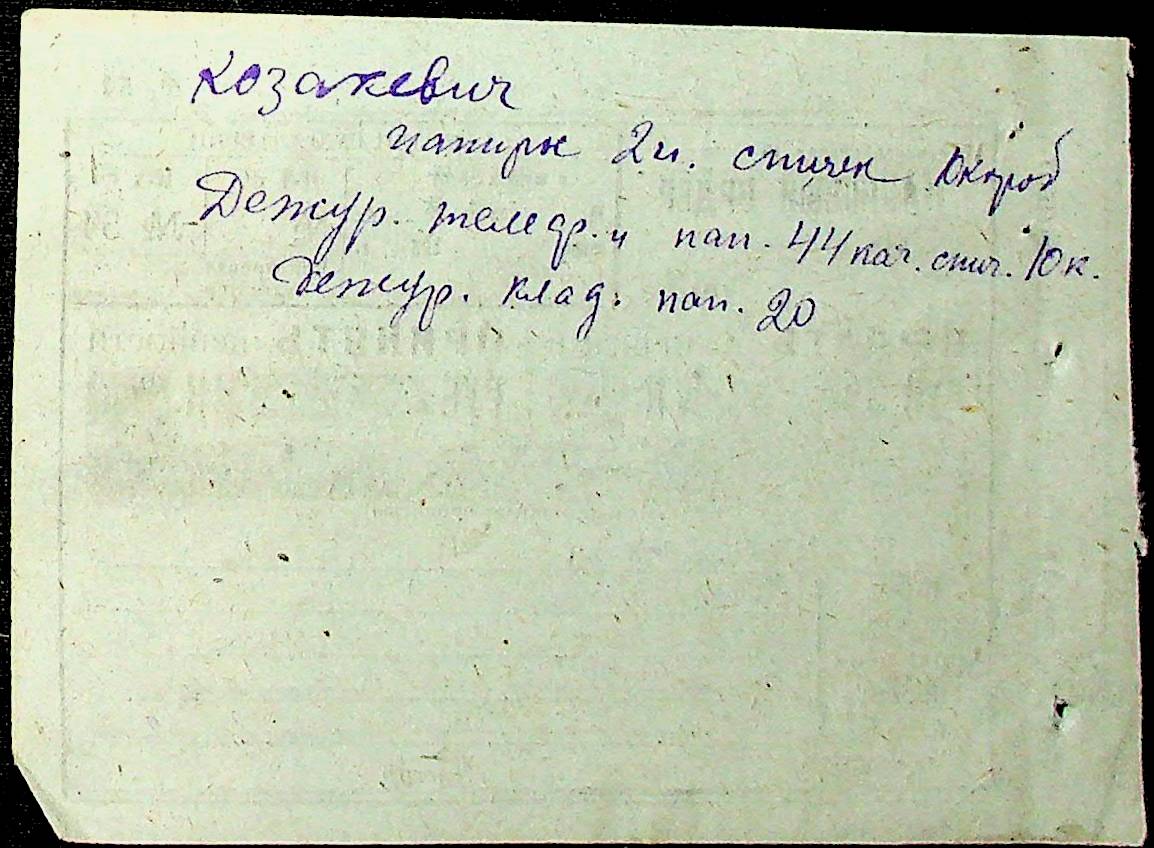 Козакевич
папирос 2п. спичек 1 короб
Дежур. телефон. пап. 44 пач. спич. 10к.
Дежур. клад. пап. 20